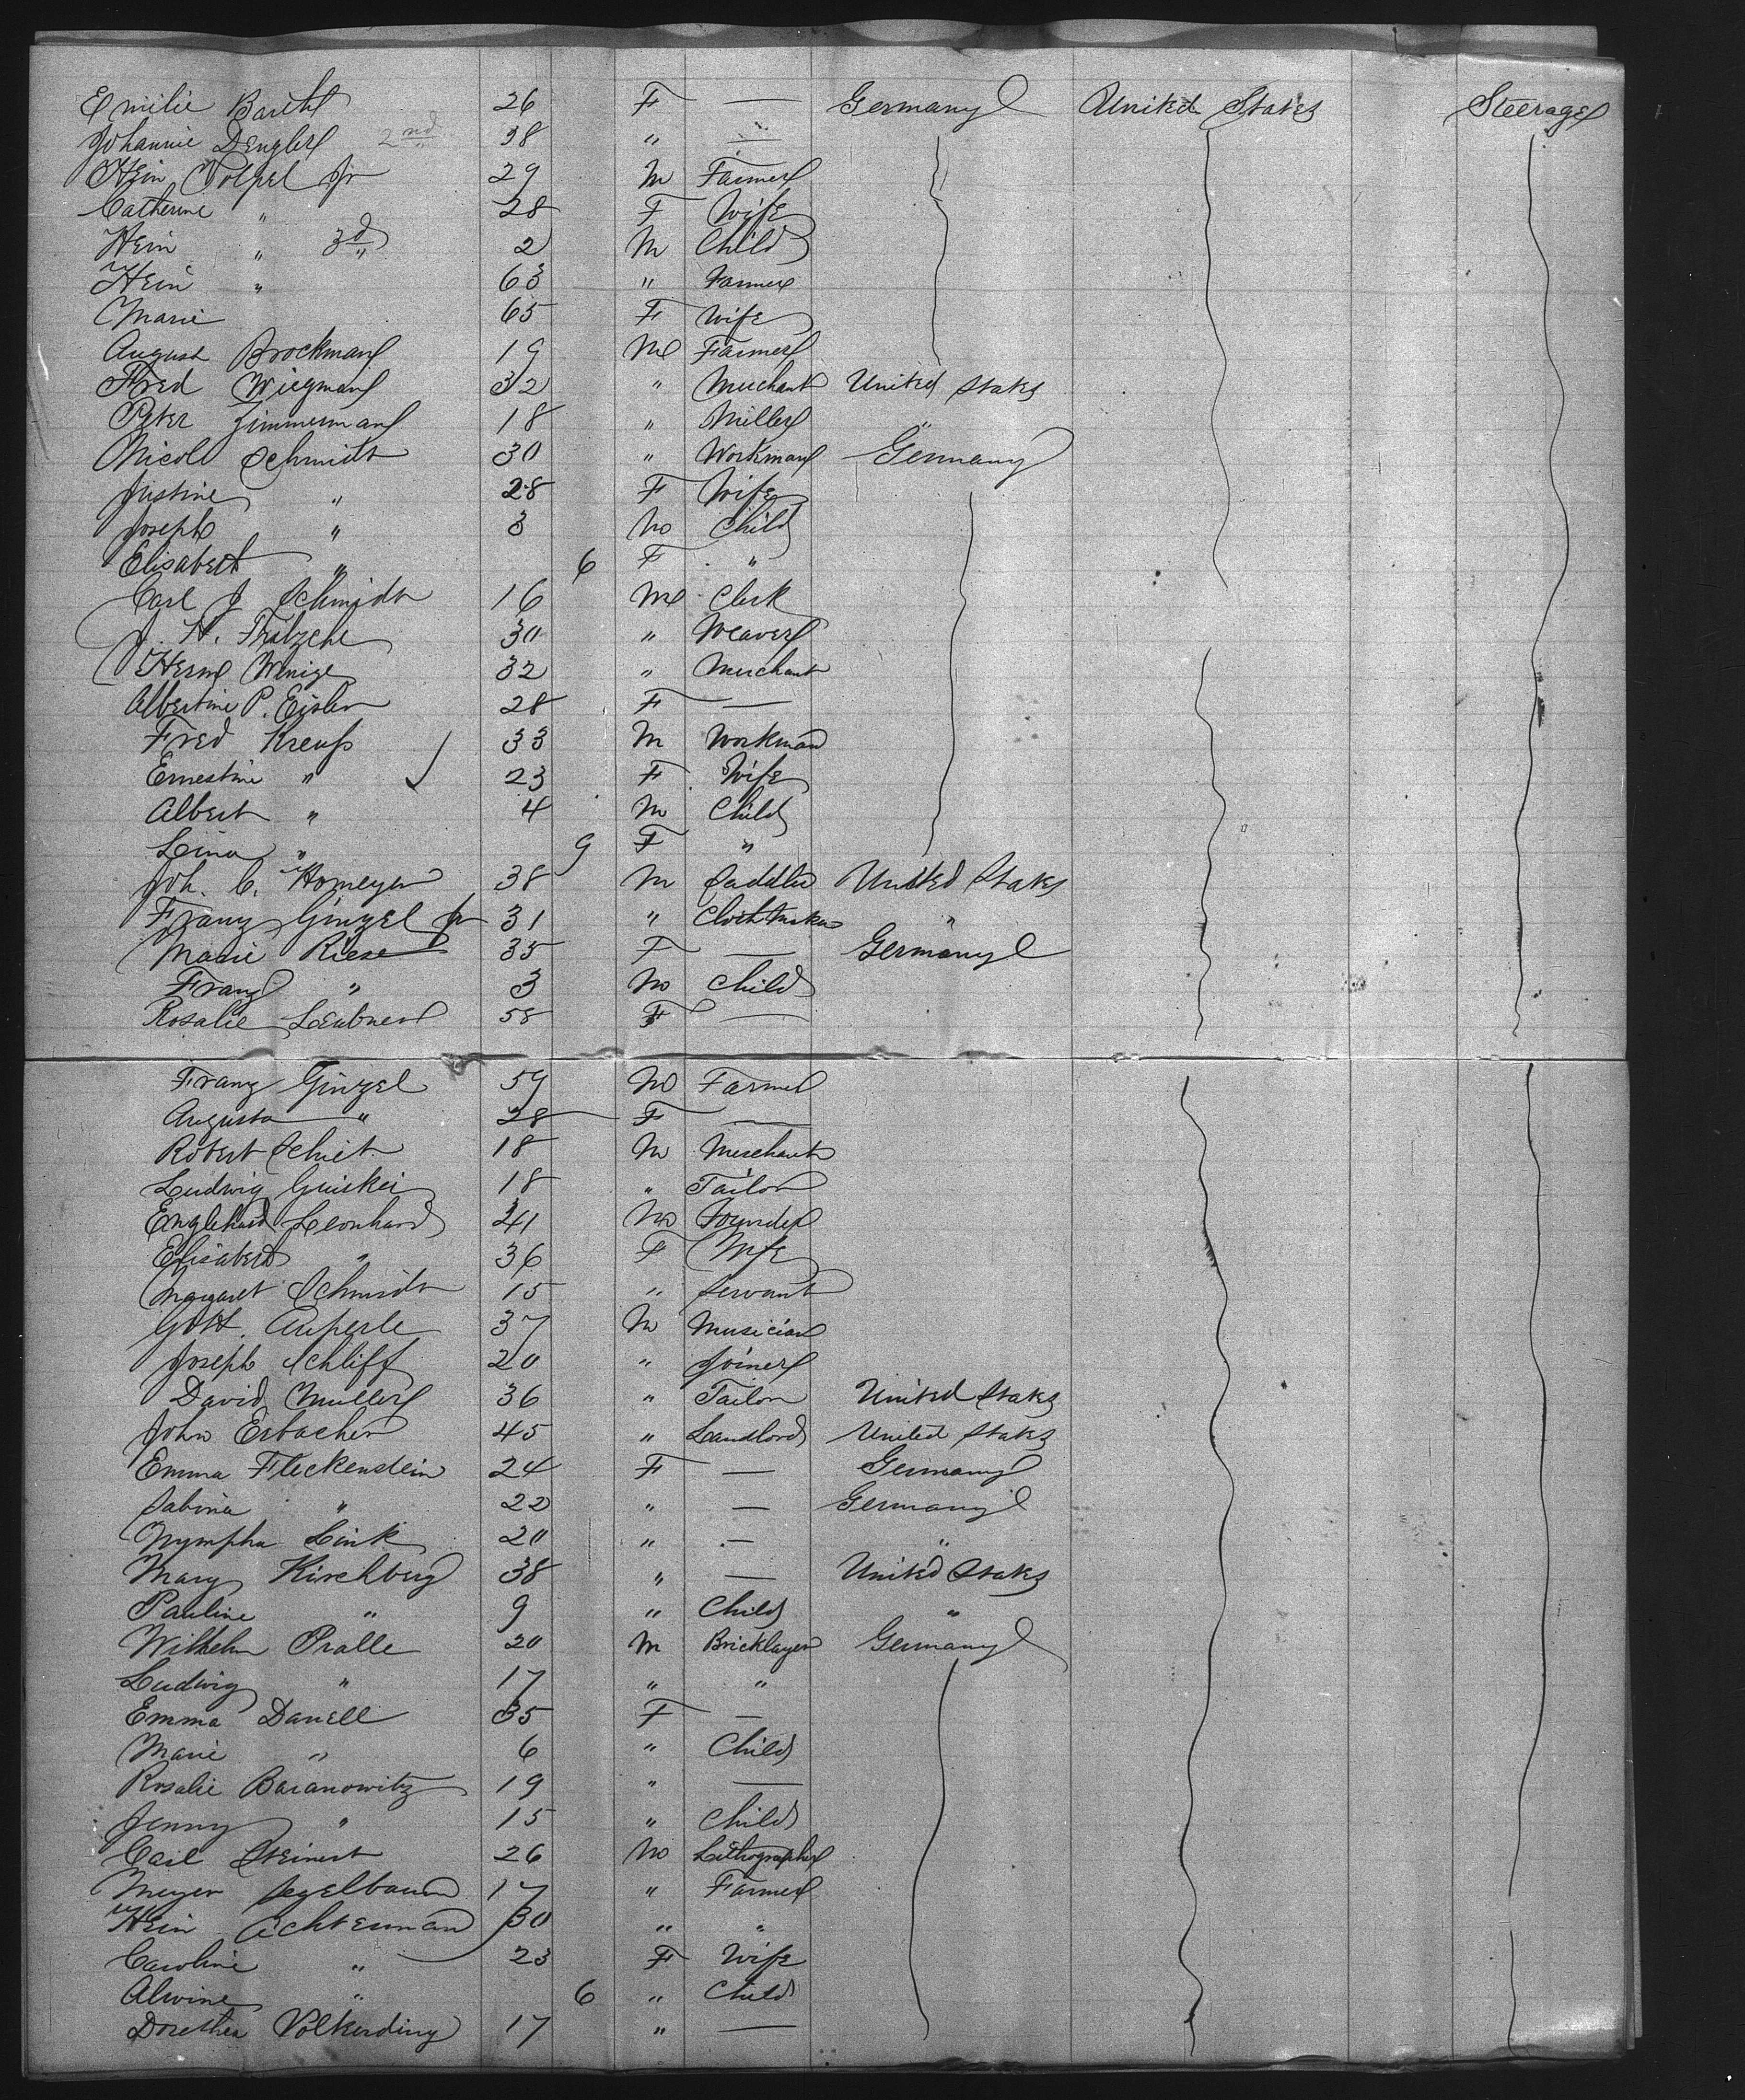 Emilie Barth 26 F — Germany United States Steerage
Johannie Dengler 2nd 38 " —
Hein Volpel Jr 29 M Farmer
Catherine " 28 F Wife
Hein " 3d 2 M Child
Hein " 63 " Farmer
Marie 65 F Wife
August Brockman 19 M Farmer
Fred Wiegman 32 " Merchant United States
Peter Zimmerman 18 " Miller "
Nicol Schmidt 30 " Workman Germany
Justine " 28 F Wife
Joseph " 3 M Child
Elisabeth " 6 F "
Carl J Schmidt 16 M Clerk
J. H. 30 " Weaver
Herm 32 " Merchant
Albertine P. Eisler 28 F —
Fred Kreuß 33 M Workman
Ernestine " 23 F Wife
Albert " 4 M Child
Lina " 9 F "
Joh. C. Homeyer 38 M Saddler United States
Franz Ginzel Jr 31 " "
Marie Riese 35 F — Germany
Franz " 3 M Child
Rosalie Leubner 58 F —
Franz Ginzel 59 M Farmer
Augusta " 28 F —
Robert 18 M Merchant
Ludwig 18 " Tailor
Englehard Leonhard 41 M Founder
Elisabeth " 36 F Wife
Margaret Schmidt 15 " Servant
Gott. 37 M Musician
Joseph Schliff 20 " Joiner
David Muller 36 " Tailor United States
John Erbacher 45 " Landlord United States
Emma Fleckenstein 24 F — Germany
Sabina " 22 " — Germany
Nympha Link 20 " — "
Mary Kirchberg 38 " — United States
Pauline " 9 " Child "
Wilhelm Pralle 20 M Bricklayer Germany
Ludwig " 17 " "
Emma Danell 35 F —
Marie " 6 " Child
Rosalie Baranowitz 19 " —
Jenny " 15 " Child
Carl Steinert 26 M Lithographer
Meyer Segelbaum 17 " Farmer
Hein Achterman 30 " "
Caroline " 23 F Wife
Alwine " 6 " Child
Dorethea Volkerding 17 " —